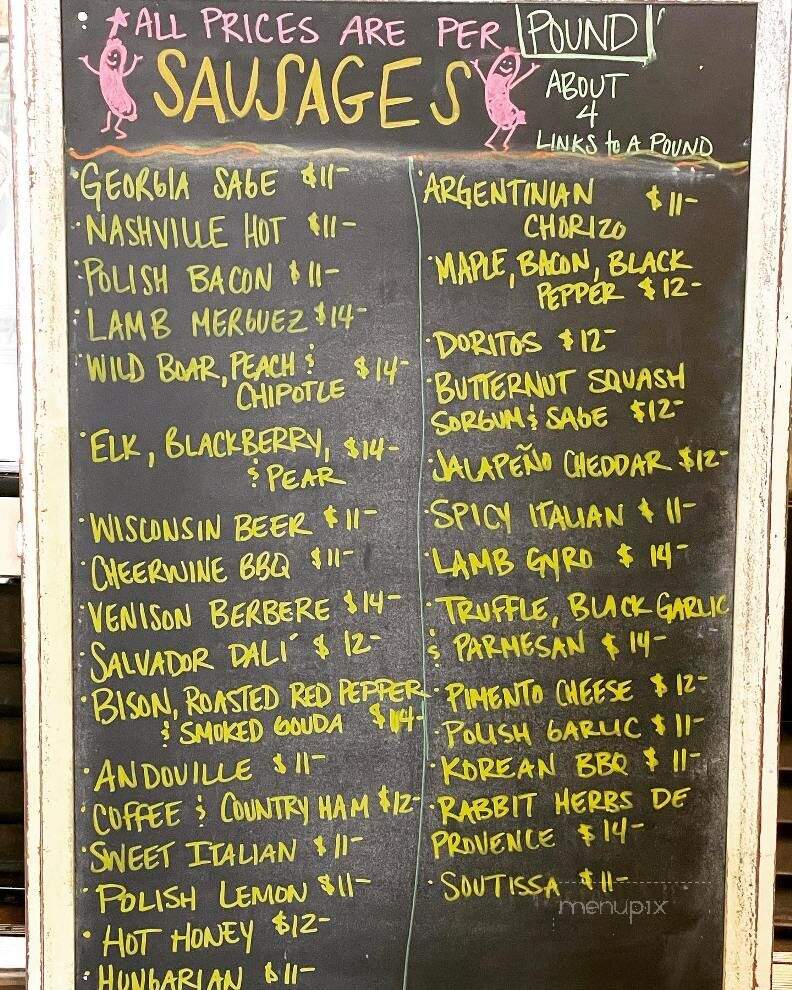 ALL PRICES ARE PER POUND
SAUSAGES
ABOUT
4
LINKS to A POUND
GEORGIA SAGE $11-
NASHVILLE HOT $11-
POLISH BACON $11-
LAMB MERGUEZ $14-
WILD BOAR, PEACH &
CHIPOTLE $14-
ELK, BLACKBERRY, $14-
& PEAR
WISCONSIN BEER $11-
CHEERWINE BBQ $11-
VENISON BERBERE $14-
SALVADOR DALI´ $12-
BISON, ROASTED RED PEPPER
& SMOKED GOUDA $14-
ANDOVILLE $11-
COFFEE & COUNTRY HAM $12-
SWEET ITALIAN $11-
POLISH LEMON $11-
HOT HONEY $12-
HUNGARIAN $11-
ARGENTINIAN $11-
CHORIZO
MAPLE, BACON, BLACK
PEPPER $12-
DORITOS $12-
BUTTERNUT SQUASH
SORGUM & SAGE $12-
JALAPEÑO CHEDDAR $12-
SPICY ITALIAN $11-
LAMB GYRO $14-
TRUFFLE, BLACK GARLIC
& PARMESAN $14-
PIMENTO CHEESE $12-
POLISH GARLIC $11-
KOREAN BBQ $11-
RABBIT HERBS DE
PROVENCE $14-
SOUTISSA $11-
menupix